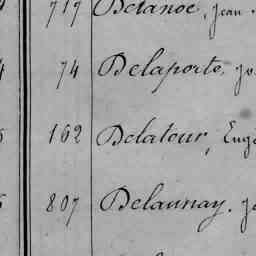 717 Delanoe, Jean
74 Delaporte, Jo
162 Delatour, Eugè
807 Delaunay, Je